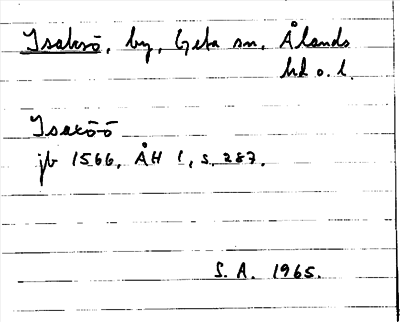 Isaksö, by, Geta sn, Ålands
hd o. l.
Isaxöö
jb 1566, ÅH 1, s. 287.
S. A. 1965.